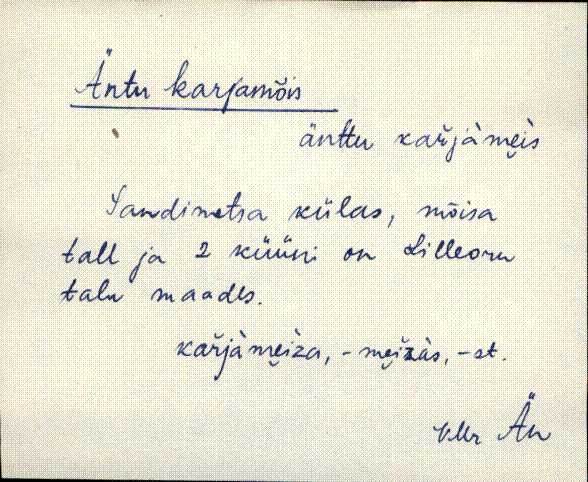 Äntu karjamõis
änttu kařjàmęìs
Sandimetsa külas, mõisa
tall ja 2 küüni on Lilleoru
talu maades.
kařjàmęìza, -męìzàs, -st.
VMr Än